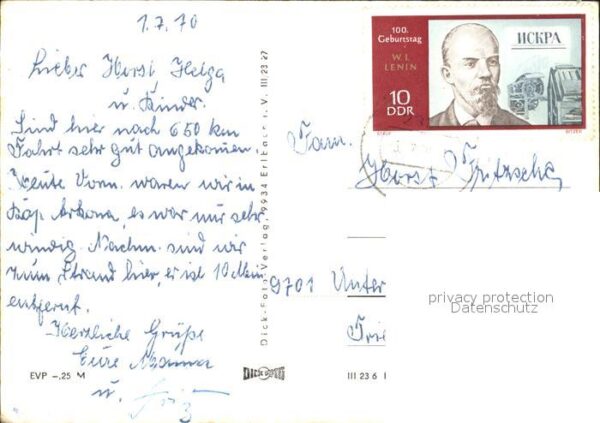 1.7.70
Lieber Horst, Helga
u. Kinder.
Sind hier nach 650 km
Fahrt sehr gut angekommen.
Heute Vorm. waren wir in
Kap Arkona, es war nur sehr
windig. Nachm. sind wir
zum Strand hier, er ist 10 Min
entfernt.
Herzliche Grüße
Eure
u.
EVP –,25 M
Dick-Foto-Verlag, 9934 Erlbach i. V. III 23 27
DICK
III 23 6
100.
Geburtstag
W. I.
LENIN
ИСКРА
10
DDR
Fam.
Horst Fritzsche
9701 Unter
privacy protection
Datenschutz